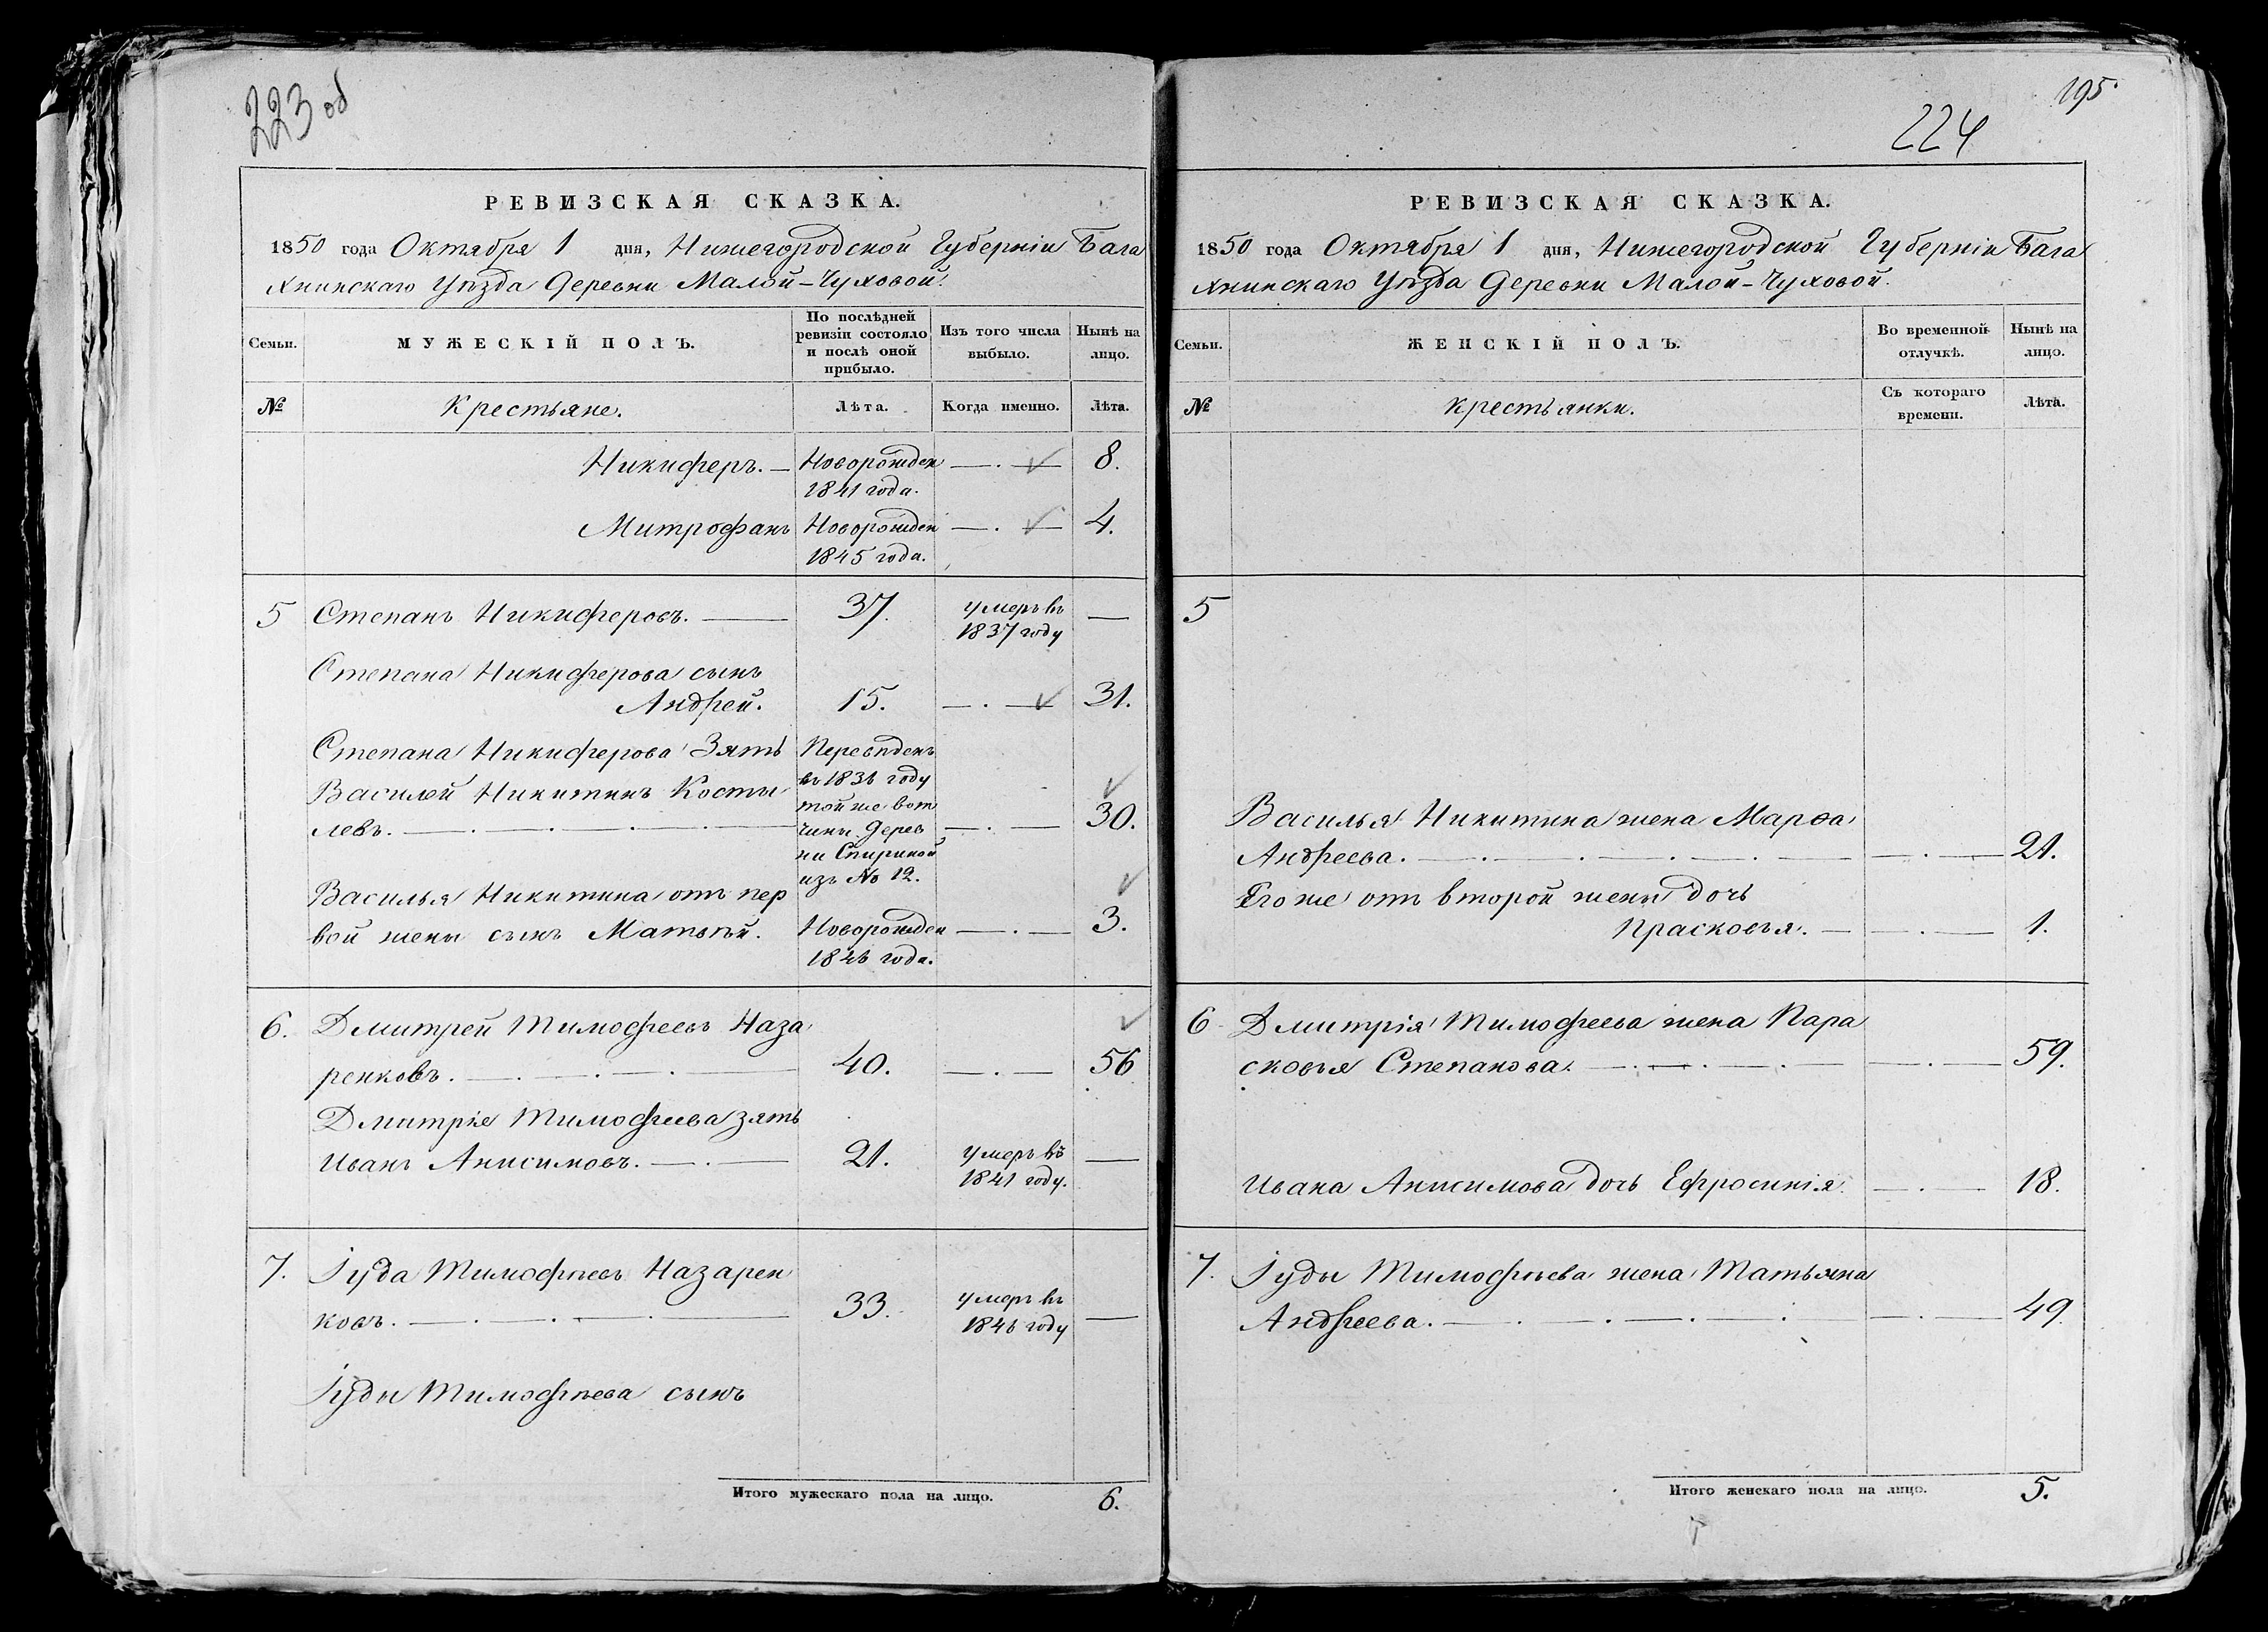 223 об
РЕВИЗСКАЯ СКАЗКА.
1850 года Октября 1 дня, Нижегородской Губерніи Бала
хнинскаго Уѣзда Деревни Малой-Чуховой.
Семьи.
МУЖЕСКІЙ ПОЛЪ.
По послѣдней ревизіи состояло и послѣ оной прибыло.
Изъ того числа выбыло.
Нынѣ на лицо.
№
Крестьяне.
Лѣта.
Когда именно.
Лѣта.
Никиферъ. — Новорожден — . — 8.
1841 года.
Митрофанъ Новорожден — . — 4.
1845 года.
5 Степанъ Никиферовъ. — 37. умеръ въ —
1837 году
Степана Никиферова сынъ
Андрей. 15. — . — 31.
Степана Никиферова Зять Переведенъ
въ 1836 году
Василей Никитинъ Косты
той же вот
левъ. — . — . — . — чины дерев — . — 30.
ни Спириной
изъ № 12.
Василья Никитина отъ пер
вой жены сынъ Матвѣй. Новорожден — . — 3.
1846 года.
6. Дмитрей Тимофеевъ Наза
ренковъ. — . — . — . — 40. — . — 56
Дмитрія Тимофеева зять
Иванъ Анисимовъ. — . — 21. умеръ въ —
1841 году.
7. Іуда Тимофѣевъ Назарен
ковъ. — . — . — . — 33. умеръ въ —
1846 году
Іуды Тимофѣева сынъ
Итого мужескаго пола на лицо. 6.
195.
224
РЕВИЗСКАЯ СКАЗКА.
1850 года Октября 1 дня, Нижегородской Губерніи Бала
хнинскаго Уѣзда Деревни Малой-Чуховой.
Семьи.
ЖЕНСКІЙ ПОЛЪ.
Во временной отлучкѣ.
Нынѣ на лицо.
№
крестьянки.
Съ котораго времени.
Лѣта.
5
Василья Никитина жена Марѳа
Андреева. — . — . — . — . — — . — 21.
Его же отъ второй жены дочь
Прасковья. — — . — 1.
6 Дмитрія Тимофеева жена Пара
сковья Степанова. — . — . — . — — . — 59.
Ивана Анисимова дочь Ефросинія. — . — 18.
7. Іуды Тимофѣева жена Татьяна
Андреева. — . — . — . — — . — 49.
Итого женскаго пола на лицо. 5.